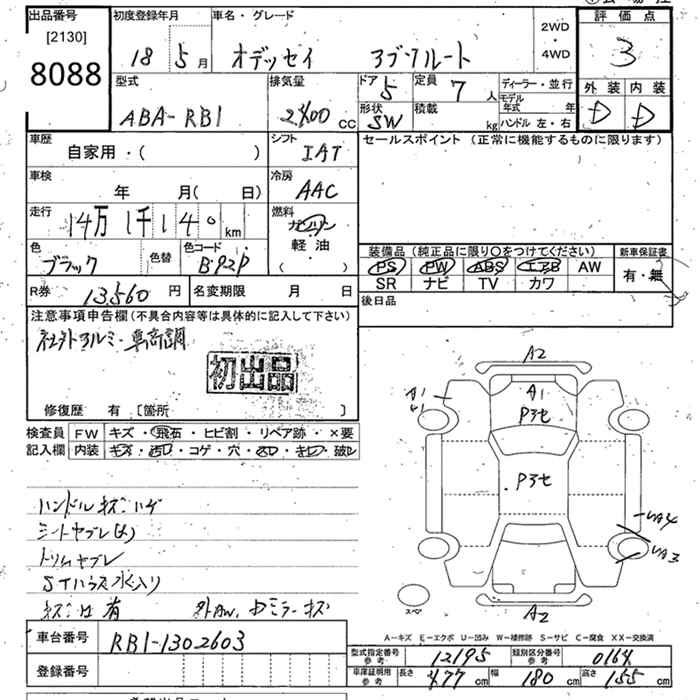 出品番号 初度登録年月 車名・グレード 評価点
[2130] 2WD
8088 18 5月 オデッセイ アブソルート ・4WD 3
型式 排気量 ドア 定員 ディーラー・並行 外装 内装
ABA-RB1 2400cc 5 7人 モデル年式 年 D D
形状 積載
SW kg ハンドル 左・右
車歴 シフト セールスポイント(正常に機能するものに限ります)
自家用・( ) IAT
車検 冷房
年 月( 日) AAC
走行 燃料
14万1千140km ガソリン
軽油
( )
色 色替 色コード 装備品(純正品に限り○をつけてください) 新車保証書
ブラック B92P PS PW ABS エアB AW 有・無
SR ナビ TV カワ
R券 13,560円 名変期限 月 日 後日品
注意事項申告欄(不具合内容等は具体的に記入して下さい)
社外アルミ・車高調
初出品
修復歴 有 [箇所 ]
検査員 FW キズ・飛石・ヒビ割・リペア跡・×要
記入欄 内装 キズ・汚レ・コゲ・穴・凹レ・キレ・破レ
A2
A1
A1
P3セ
P3セ
A2
スペ
ハンドルキズ・ハゲ
シートヤブレ(大)
トリムヤブレ
STハウス水入り
キズ凹有 外AW、ドミラーキズ
A-キズ E-エクボ U-凹み W-補修跡 S-サビ C-腐食 XX-交換済
車台番号 RB1-1302603
型式指定番号 参考 12195 類別区分番号 参考 0164
登録番号
車庫証明用 参考 長さ 477cm 幅 180cm 高さ 155cm